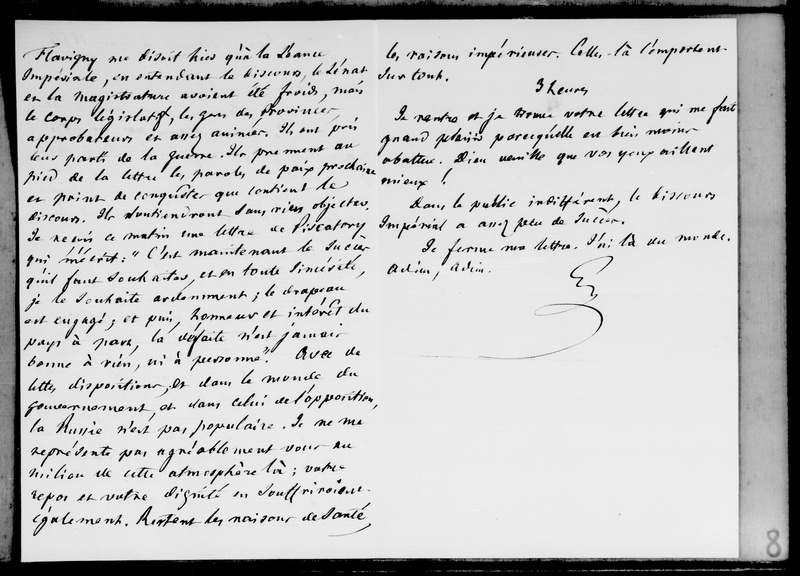 Flavigny me disoit hier qu'à la Séance
Impériale, en entendant le discours, le Sénat
et la magistrature avoient été froids, mais
le Corps législatif, les gens des provinces,
approbateurs et assez animés. Ils ont pris
leur parti de la guerre. Ils prennent au
pied de la lettre les paroles de paix prochaine
et point de conquêtes que contient le
discours. Ils soutiendront sans rien objecter.
Je reçois ce matin une lettre de Piscatory
qui m'écrit : " C'est maintenant le succès
qu'il faut souhaiter, et en toute sincérité,
je le souhaite ardemment ; le drapeau
est engagé ; et puis, honneur et intérêt du
pays à part, la défaite n'est jamais
bonne à rien, ni à personne". Avec de
telles dispositions, et dans le monde du
gouvernement, et dans celui de l'opposition,
la Russie n'est pas populaire. Je ne me
représente pas agréablement vous au
milieu de cette atmosphère là ; votre
repos et votre dignité en souffriroient
également. Restent les raisons de santé,
les raisons impérieuses. Celles-là l'emportent
sur tout.
3 heures
Je rentre et je trouve votre lettre qui me fait
grand plaisir parcequ'elle est bien moins
abattue. Dieu veuille que vos yeux aillent
mieux !
Dans le public indifférent, le discours
Impérial a assez peu de succès.
Je ferme ma lettre. J'ai là du monde.
Adieu, Adieu.
8